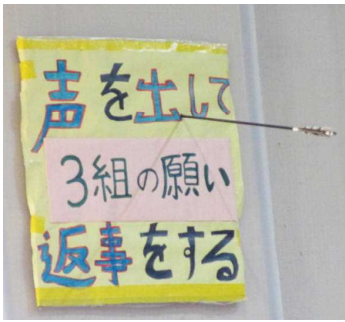 声を出して
3組の願い
返事をする